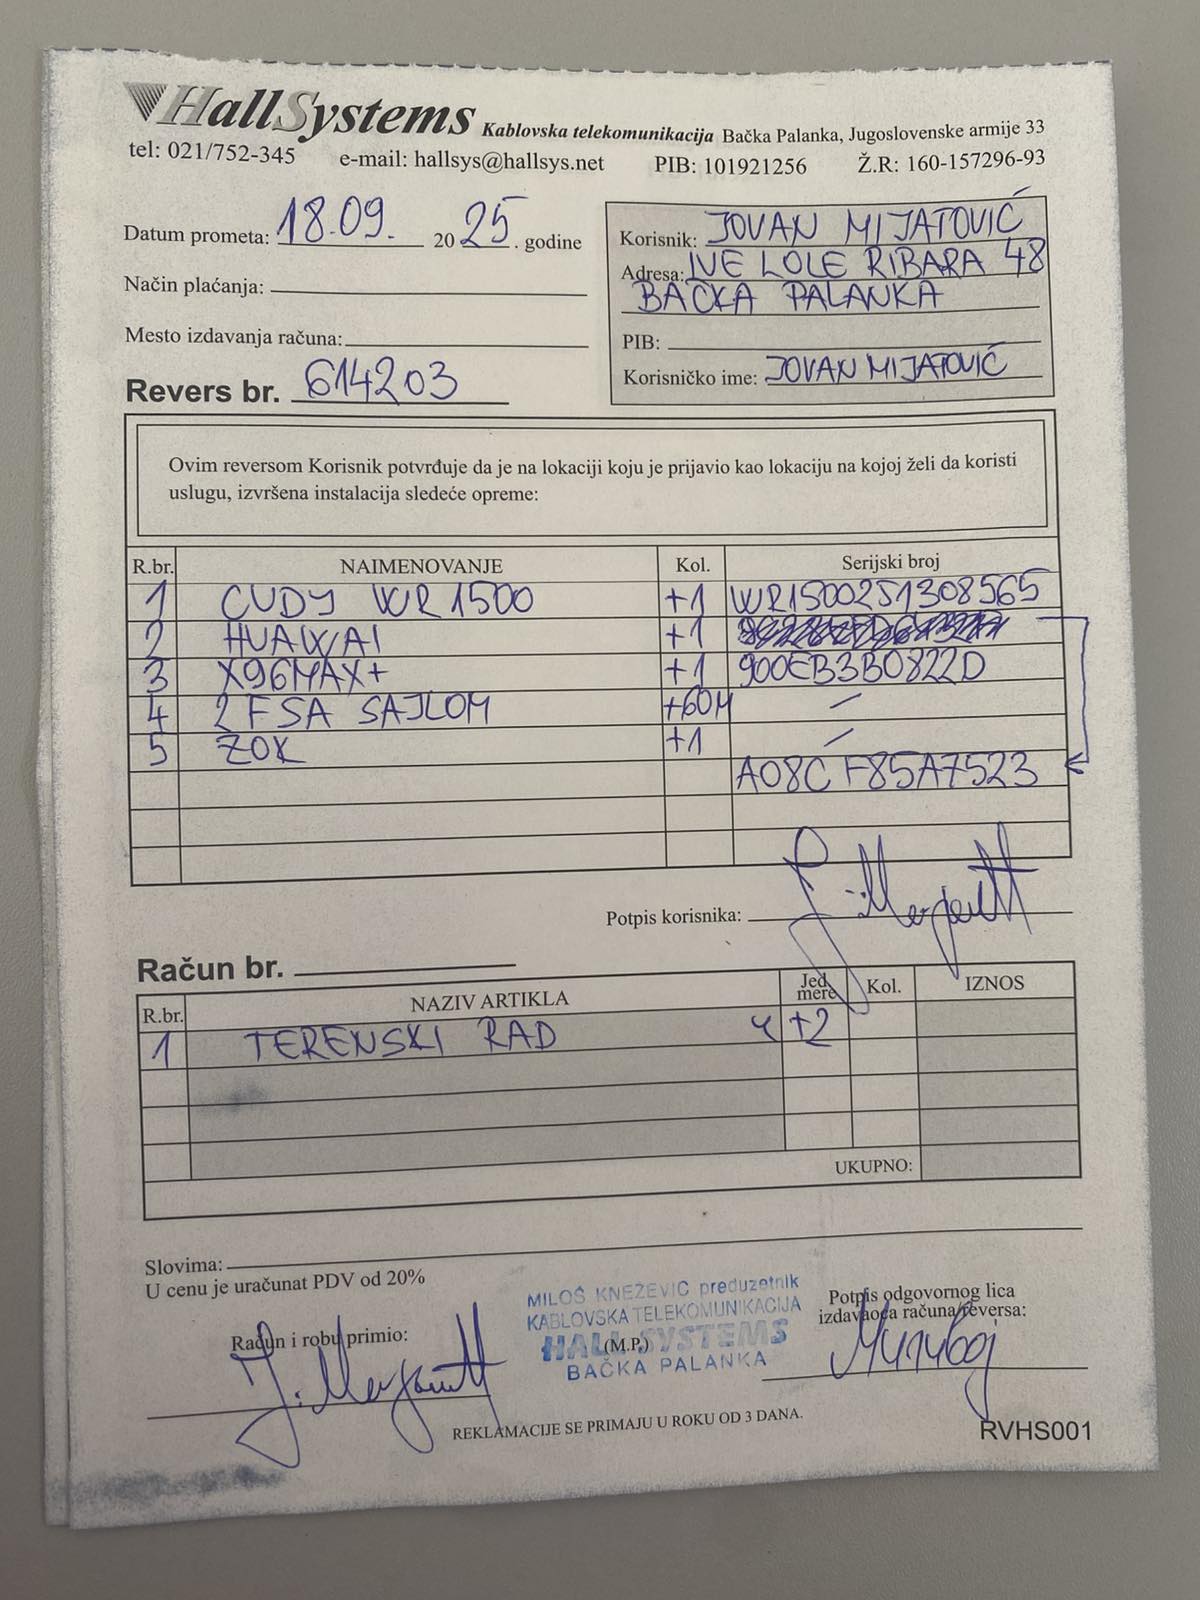 HallSystems Kablovska telekomunikacija Bačka Palanka, Jugoslovenske armije 33
tel: 021/752-345 e-mail: hallsys@hallsys.net PIB: 101921256 Ž.R: 160-157296-93
Datum prometa: 18.09. 2025. godine
Način plaćanja:
Mesto izdavanja računa:
Revers br. 614203
Korisnik: JOVAN MIJATOVIĆ
Adresa: IVE LOLE RIBARA 48
BAČKA PALANKA
PIB:
Korisničko ime: JOVAN MIJATOVIĆ
Ovim reversom Korisnik potvrđuje da je na lokaciji koju je prijavio kao lokaciju na kojoj želi da koristi
uslugu, izvršena instalacija sledeće opreme:
R.br. NAIMENOVANJE Kol. Serijski broj
1 CUDY WR1500 +1 WR1500251308565
2 HUAWAI +1
3 X96MAX+ +1 900EB3B0822D
4 2FSA SAJLOM +60M /
5 ZOK +1 /
A08CF85A7523
Potpis korisnika:
Račun br.
R.br. NAZIV ARTIKLA Jed. mere Kol. IZNOS
1 TERENSKI RAD Ч +2
UKUPNO:
Slovima:
U cenu je uračunat PDV od 20%
Račun i robu primio:
MILOŠ KNEŽEVIĆ preduzetnik
KABLOVSKA TELEKOMUNIKACIJA
HALL SYSTEMS
(M.P.)
BAČKA PALANKA
Potpis odgovornog lica
izdavaoca računa/reversa:
REKLAMACIJE SE PRIMAJU U ROKU OD 3 DANA.
RVHS001